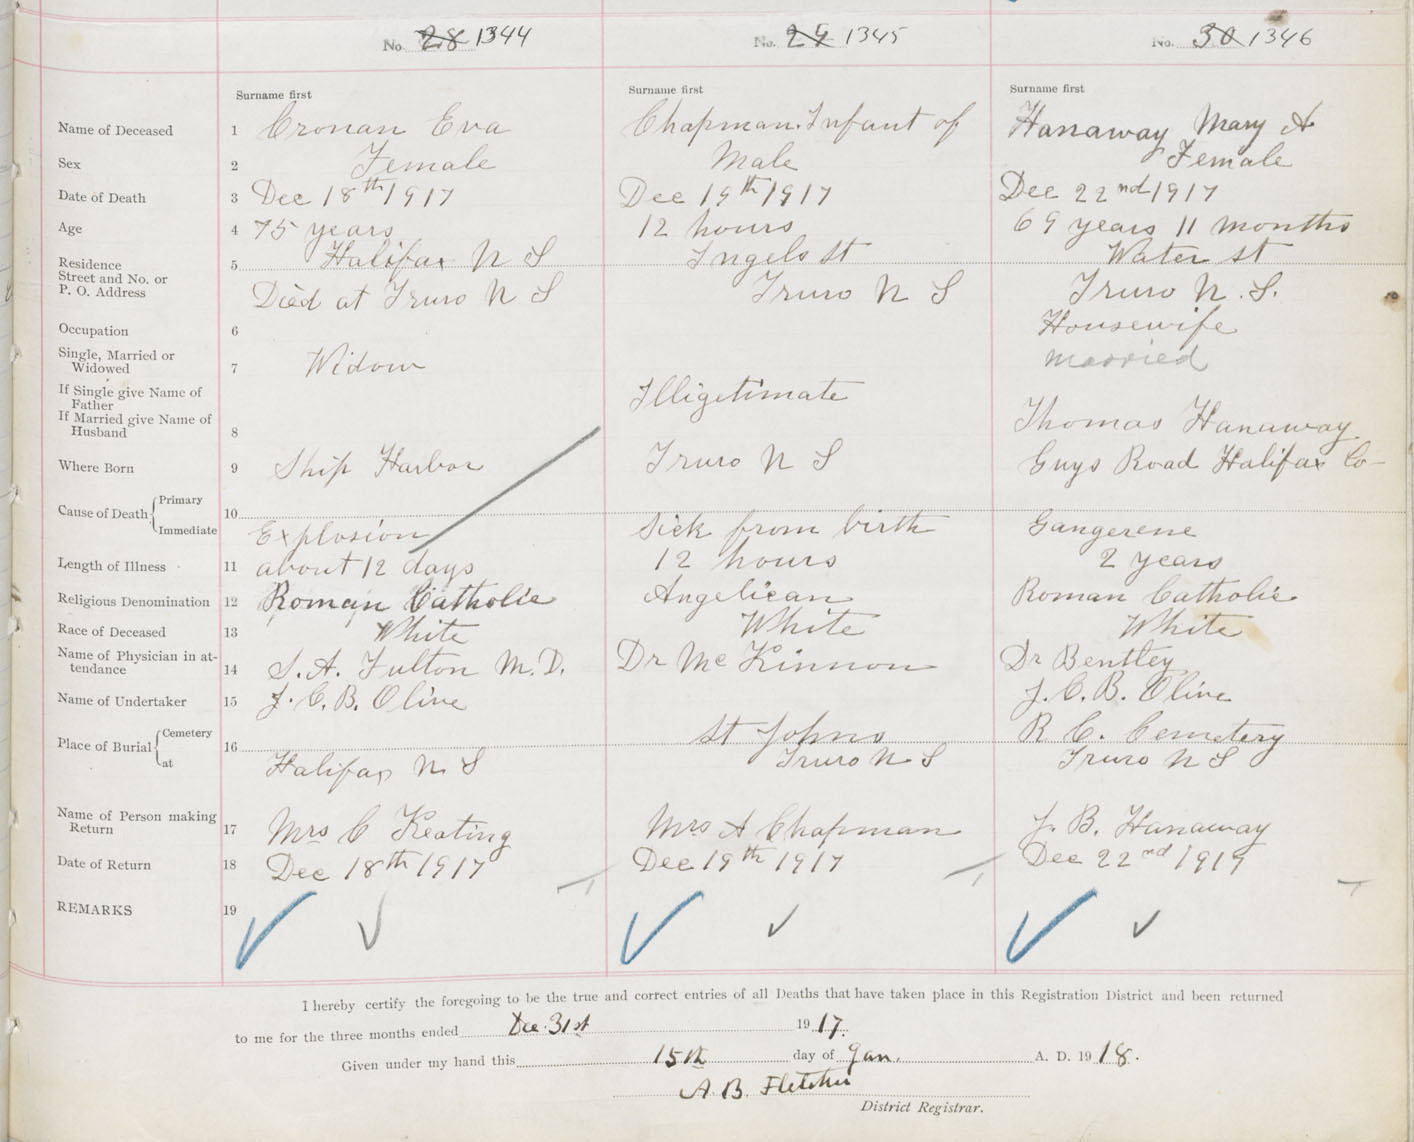 No. 28 1344 No. 29 1345 No. 30 1346
Surname first Surname first Surname first
Name of Deceased 1 Cronan Eva Chapman Infant of Hanaway Mary A
Sex 2 Female Male Female
Date of Death 3 Dec 18th 1917 Dec 19th 1917 Dec 22nd 1917
Age 4 75 years 12 hours 69 years 11 months
Residence 5 Halifax N S Ingels St Water St
Street and No. or
P. O. Address Died at Truro N S Truro N S Truro N. S.
Occupation 6 Housewife
Single, Married or
Widowed 7 Widow married
If Single give Name of
Father Illigetimate
If Married give Name of
Husband 8 Thomas Hanaway
Where Born 9 Ship Harbor Truro N S Guys Road Halifax Co
Cause of Death Primary 10
Immediate Explosion Sick from birth Gangerene
Length of Illness 11 about 12 days 12 hours 2 years
Religious Denomination 12 Roman Catholic Angelican Roman Catholic
Race of Deceased 13 White White White
Name of Physician in at-
tendance 14 S. A. Fulton M. D. Dr McKinnon Dr Bentley
Name of Undertaker 15 J. C. B. Olive J. C. B. Olive
Place of Burial Cemetery 16 St Johns R C. Cemetery
at Halifax N S Truro N S Truro N S
Name of Person making
Return 17 Mrs C Keating Mrs A Chapman J. B. Hanaway
Date of Return 18 Dec 18th 1917 Dec 19th 1917 Dec 22nd 1917
REMARKS 19
I hereby certify the foregoing to be the true and correct entries of all Deaths that have taken place in this Registration District and been returned
to me for the three months ended Dec. 31st 1917.
Given under my hand this 15th day of Jan. A. D. 1918.
A. B. Fletcher
District Registrar.